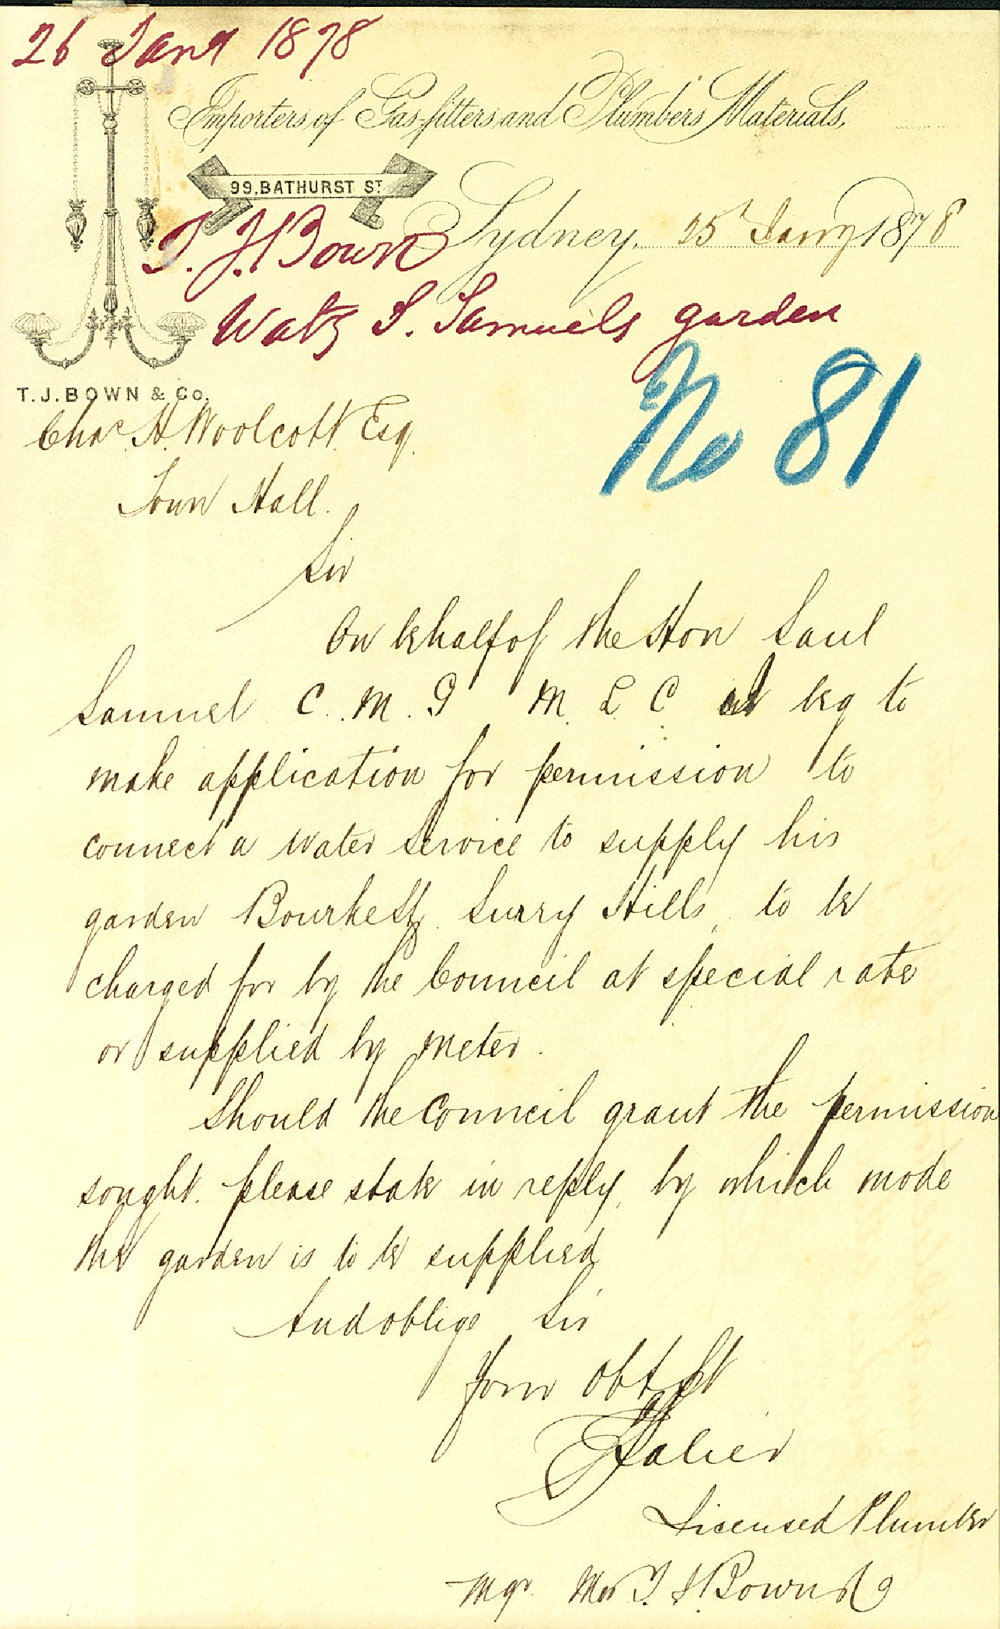 26 Jany 1878
Importers of Gas-fitters and Plumbers Materials,
99. BATHURST ST
Sydney, 25 Janry 1878
T. J. Bown
Water S. Samuels garden
No 81
T. J. BOWN & Co.
Chas. H. Woolcott Esq.
Town Hall.
Sir
On behalf of the Hon Saul
Samuel C. M. G M. L C beg to
make application for permission to
connect a water service to supply his
garden Bourke St, Surry Hills, to be
charged for by the Council at special rate
or supplied by meter.
Should the Council grant the permission
sought. please state in reply, by which mode
the garden is to be supplied
And oblige Sir
Your Obt St
Licensed Plumber
Mgr. T. J. Bown & Co